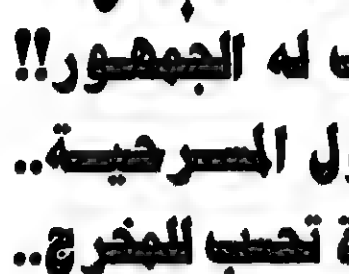 له الجمهور!!
المسرحية..
تحسب للمخرج..